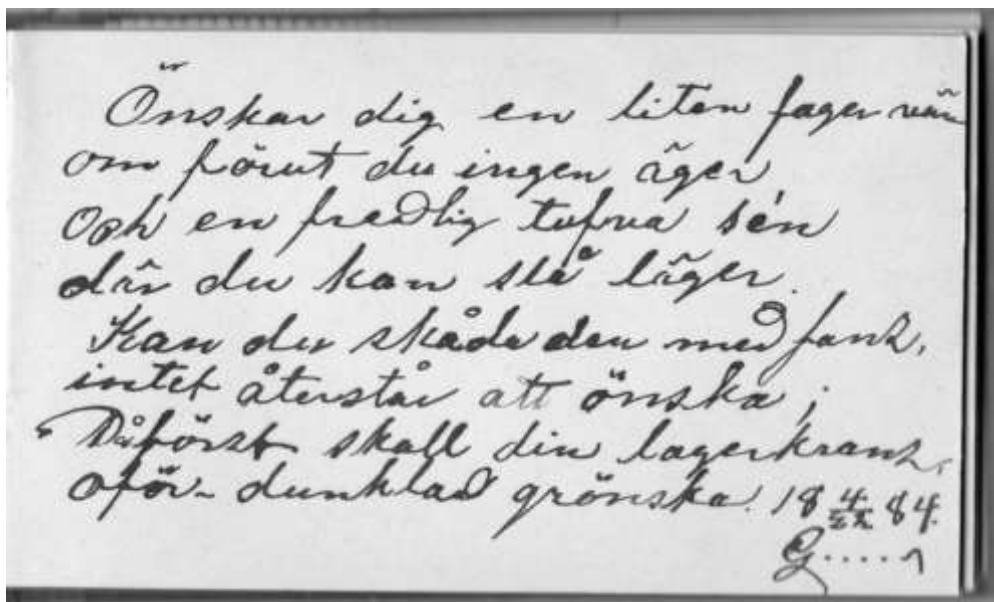 Önskar dig en liten fager vän
om förut du ingen äger,
Och en fredlig tufva sén
där du kan slå läger.
Kan du skåda den med
intet återstår att önska;
Då först skall din lagerkrans,
oför-dunklad grönska. 18 4/22 84.
G.....n